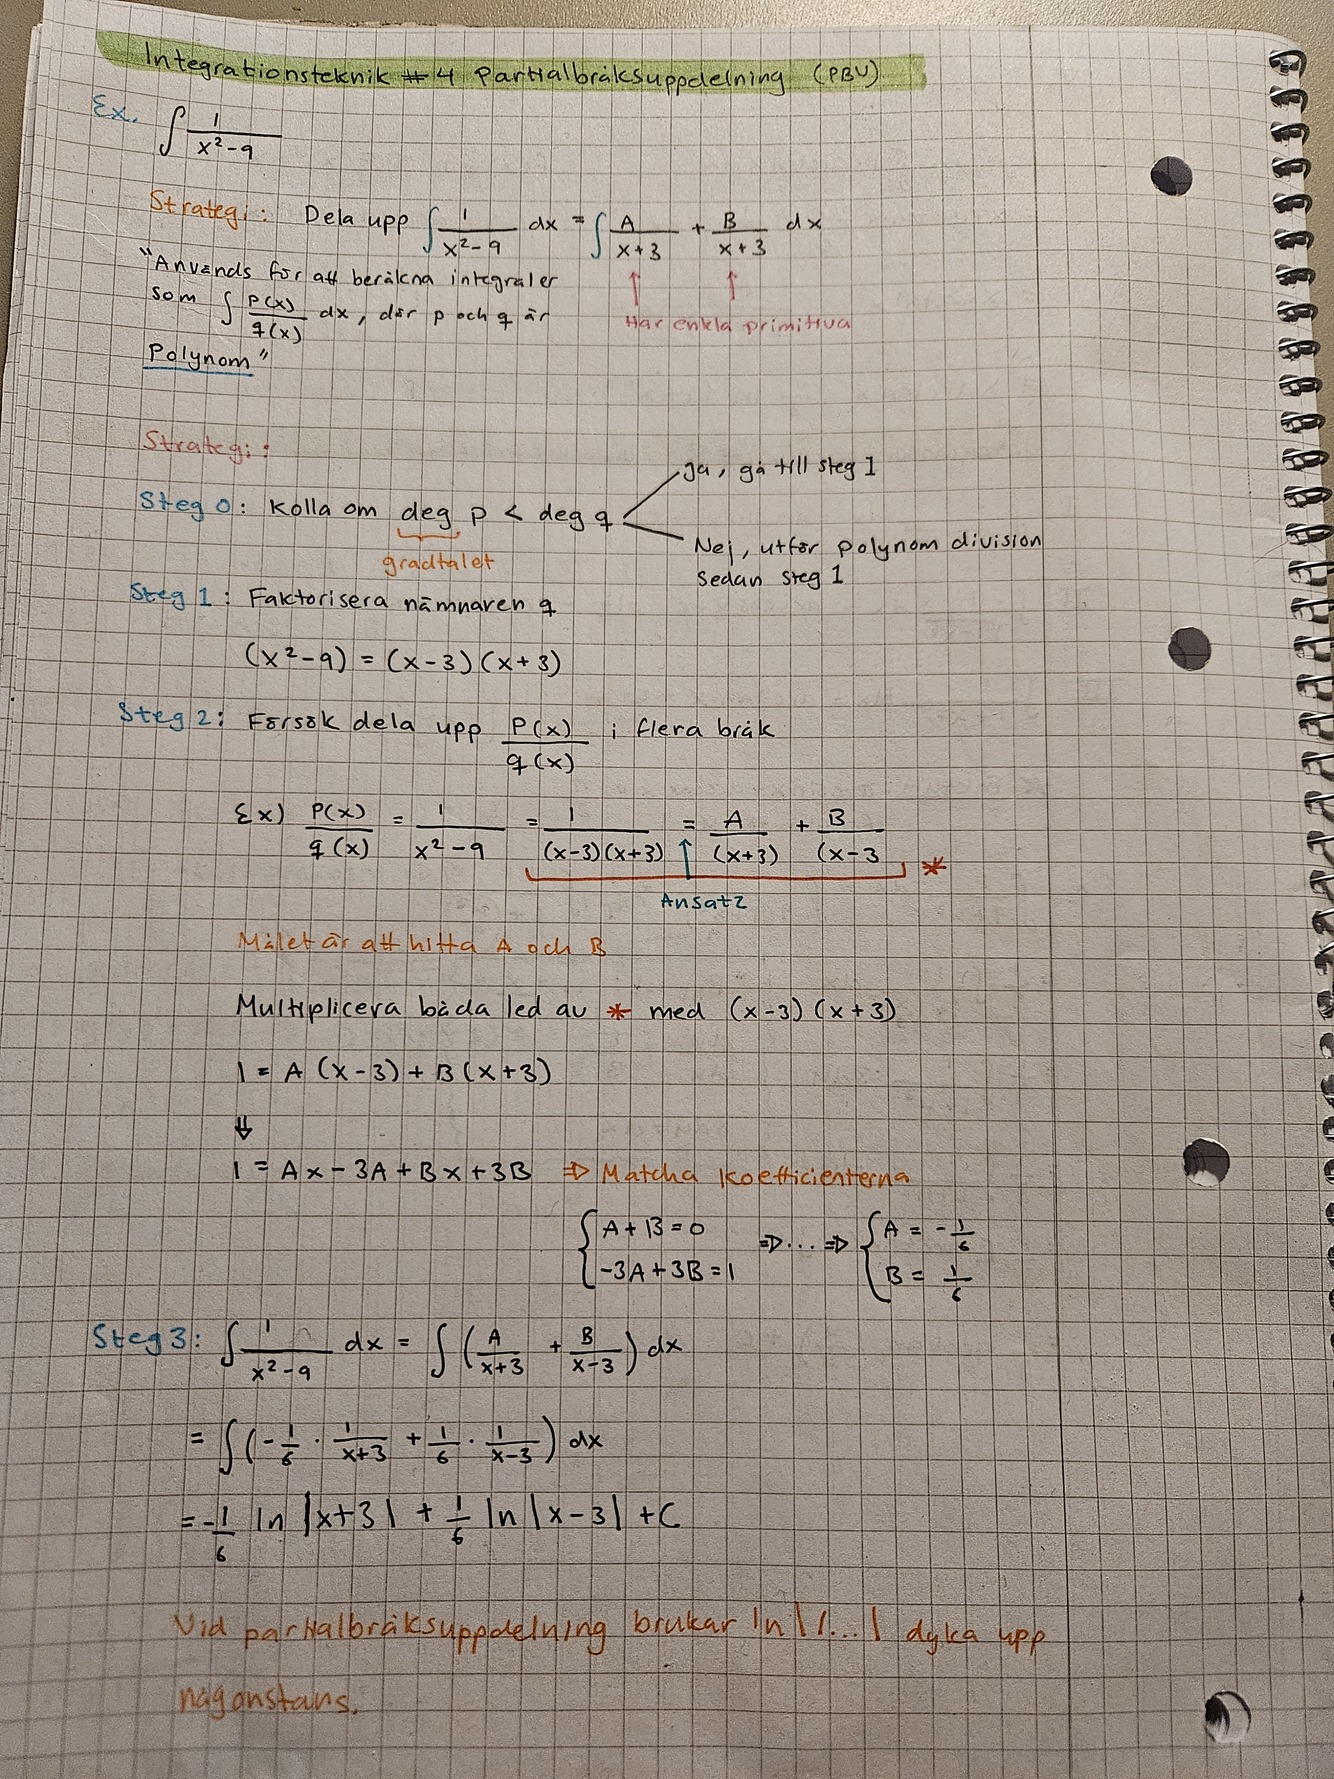 Integrationsteknik #4 Partialbråksuppdelning (PBU)
Ex. ∫ 1/(x²-9)
Strategi: Dela upp ∫ 1/(x²-9) dx = ∫ A/(x+3) + B/(x+3) dx
↑ ↑
Har enkla primitiva
"Används för att beräkna integraler
som ∫ P(x)/q(x) dx, där p och q är
Polynom"
Strategi:
Steg 0: Kolla om deg p < deg q
gradtalet
Ja, gå till steg 1
Nej, utför polynom division
sedan steg 1
Steg 1: Faktorisera nämnaren q
(x²-9) = (x-3)(x+3)
Steg 2: Försök dela upp P(x)/q(x) i flera bråk
Ex) P(x)/q(x) = 1/(x²-9) = 1/((x-3)(x+3)) = A/(x+3) + B/(x-3 *
↑
Ansatz
Målet är att hitta A och B
Multiplicera båda led av * med (x-3)(x+3)
1 = A(x-3) + B(x+3)
⇓
1 = Ax - 3A + Bx + 3B ⇒ Matcha koefficienterna
{ A + B = 0
-3A + 3B = 1
⇒ ... ⇒
{ A = -1/6
B = 1/6
Steg 3: ∫ 1/(x²-9) dx = ∫ (A/(x+3) + B/(x-3)) dx
= ∫ (-1/6 · 1/(x+3) + 1/6 · 1/(x-3)) dx
= -1/6 ln |x+3| + 1/6 ln |x-3| + C
Vid partialbråksuppdelning brukar ln|/...| dyka upp
någonstans.